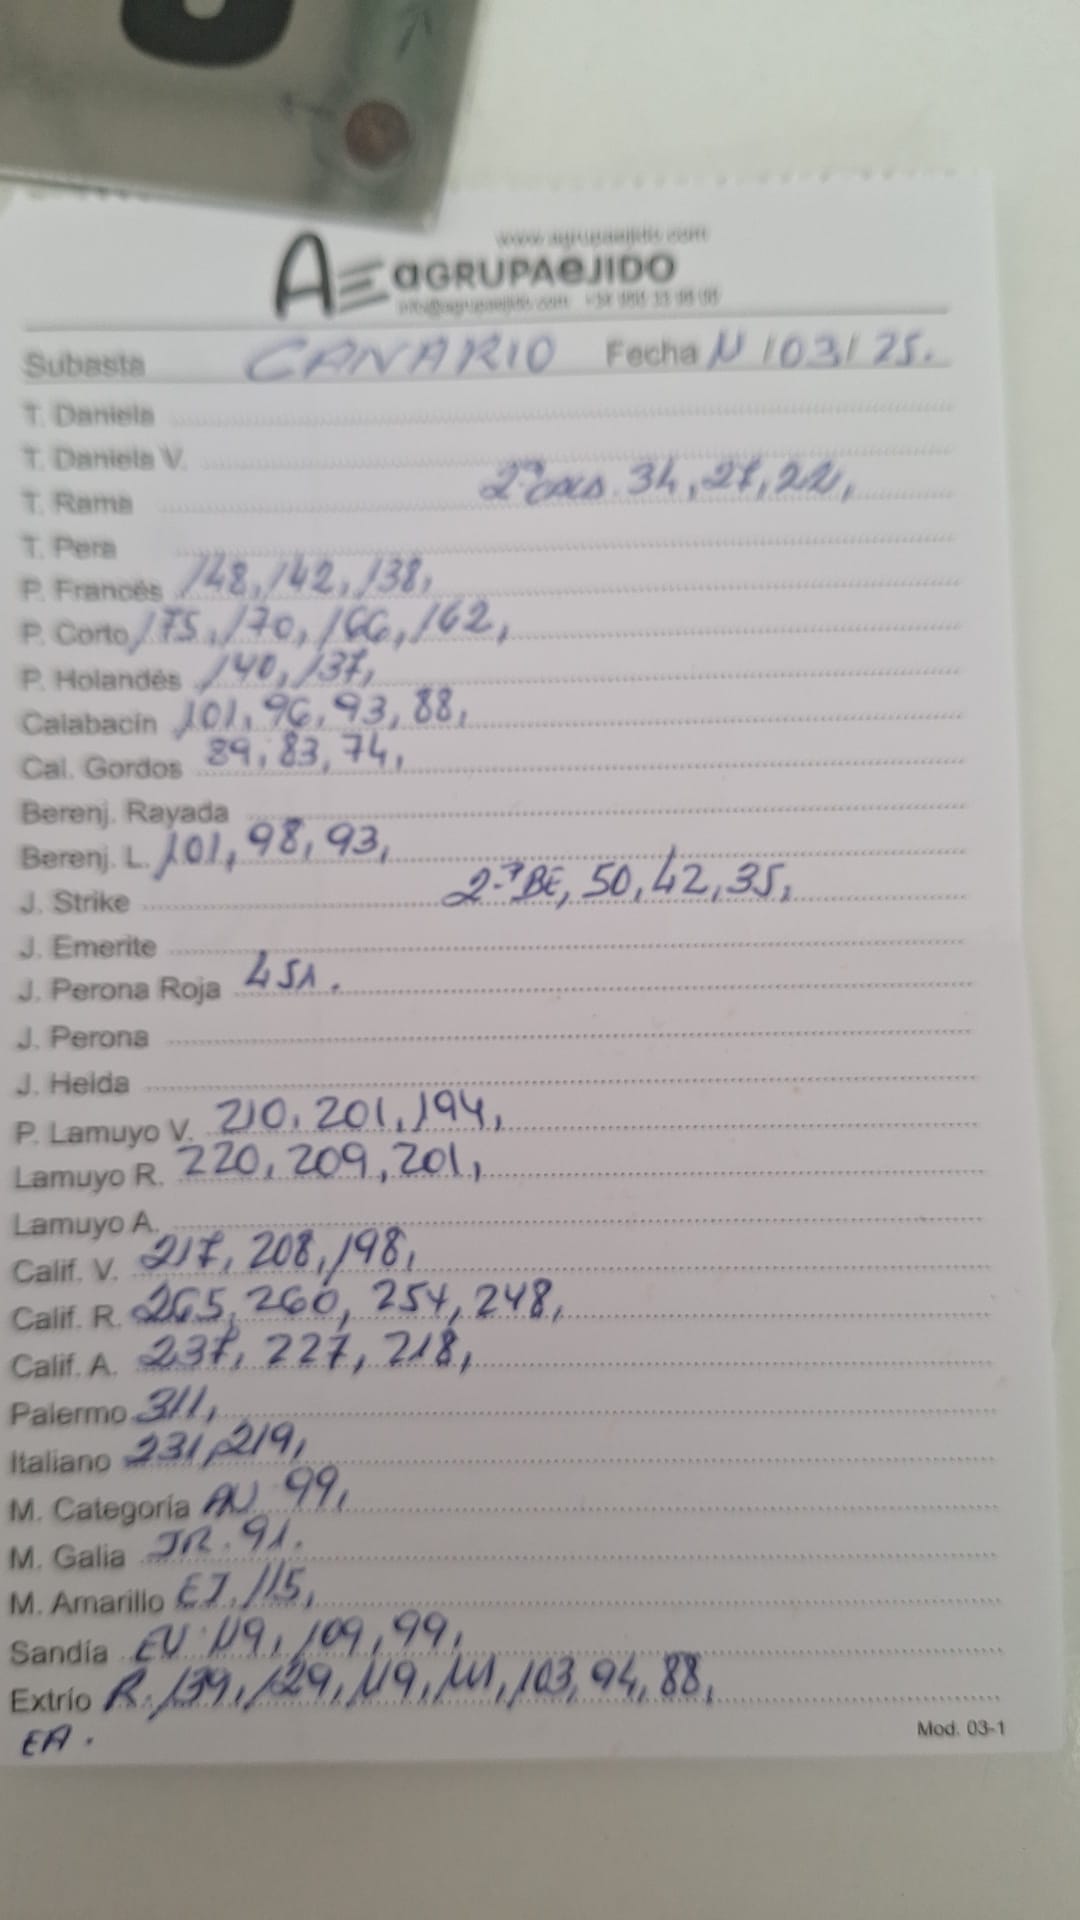 www.agrupaejido.com
AE aGRUPAeJIDO
info@agrupaejido.com
Subasta CANARIO Fecha 11/03/25.
T. Daniela
T. Daniela V.
T. Rama 34, 27, 22,
T. Pera
P. Francés 148, 142, 138,
P. Corto 175, 170, 166, 162,
P. Holandés 140, 137,
Calabacín 101, 96, 93, 88,
Cal. Gordos 89, 83, 74,
Berenj. Rayada
Berenj. L. 101, 98, 93,
J. Strike 2-ª BE, 50, 42, 35,
J. Emerite
J. Perona Roja 451.
J. Perona
J. Helda
P. Lamuyo V. 210, 201, 194,
Lamuyo R. 220, 209, 201,
Lamuyo A.
Calif. V. 217, 208, 198,
Calif. R. 265, 260, 254, 248,
Calif. A. 237, 227, 218,
Palermo 311,
Italiano 231, 219,
M. Categoría 99,
M. Galia JR. 91.
M. Amarillo EJ. 115,
Sandía EV 119, 109, 99,
Extrío R. 139, 129, 119, 111, 103, 94, 88,
EA.
Mod. 03-1